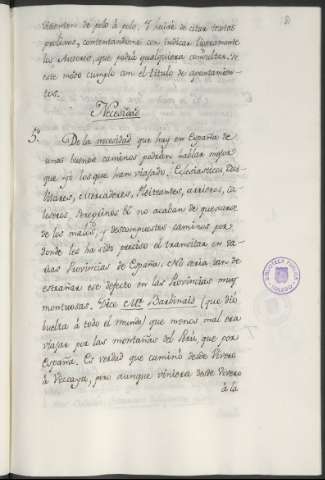 de pelo à pelo. Y huiré de citar textos
prolixos, contentandome con indicar libremente
los Autores, que podrá qualquiera consultar. De
este modo cumplo con el titulo de apuntamien-
tos.
Necesidad
5. De la necesidad que hay en España de
unos buenos caminos podrán hablar mejor
que yo los que han viajado. Eclesiasticos, Mili-
tares, Mercaderes, Pleiteantes, arrieros, ca-
leseros, Peregrinos &c no acaban de quexarse
de los malos, y descompuestos caminos por
donde les ha sido preciso el transitar en va-
rias Provincias de España. No seria tan de
estrañar ese defecto en las Provincias muy
montuosas. Dice Mr. Bardinais (que dió
buelta à todo el mundo) que menos mal era
viajar por las montañas del Perú, que por
España. Es verdad que caminó desde Vivero
à Vizcaya, pero aunque viniera desde Vivero
à la
BIBLIOTECA PUBLICA
TOLEDO